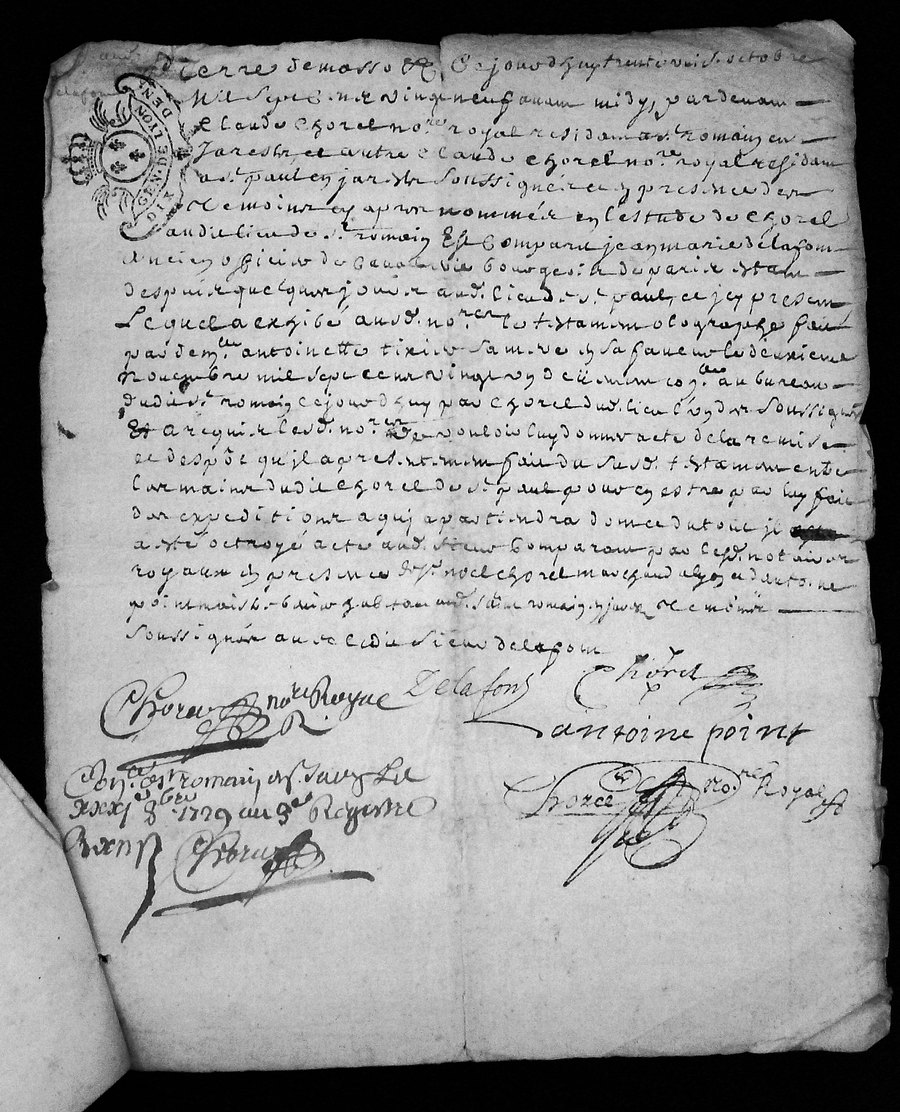 GEN. DE LYON
DIX DEN
pierre demasso & Cejourdhuy trente uni. octobre
Mil Sept Cens vingt neuf avant midy, pardevant
Claude Chorel nore royal residant a st. romain en
Jarest, et autre Claude Chorel nore royal residant
a st. paul en jarest Soussignés et en presence des
temoins cy apres nommés en lestude de Chorel
audit lieu de st. romain Est Comparu jean marie delafont
Ancien officier de Cavalerie bourgeois de paris estant
despuis quelques jours aud. lieu de st. paul, et icy present
Lequel a exhibé ausd. nores le testament olographe fait
par delle antoinette tixier sa mere en sa faveur le deuxieme
Novembre mil sept cens vingt
dudit st. romain cejourdhuy par Chorel dud. lieu lun des Soussignés
Et a requis lesd. nores de vouloir luy donner acte de la remise
et despôt quil a presentement fait du susd. testament entre
les mains dudit Chorel de st. paul pour en estre par luy fait
des expeditions a qui apartiendra dont et du tout il
a esté octroyé acte aud. sieur Comparant par lesd. notaires
royaux en presence de sr. noel Chorel marchand a lyon et dantoine
point habitant aud. romain en jarest temoins
Soussignés avec ledit Sieur delafont
Chorel nore Royal Delafont Chorel
antoine point
Conlé a st romain en Jarest Le
xxxj 8bre 1729 au 3e Registre
Chorel
Chorel No.re Royal